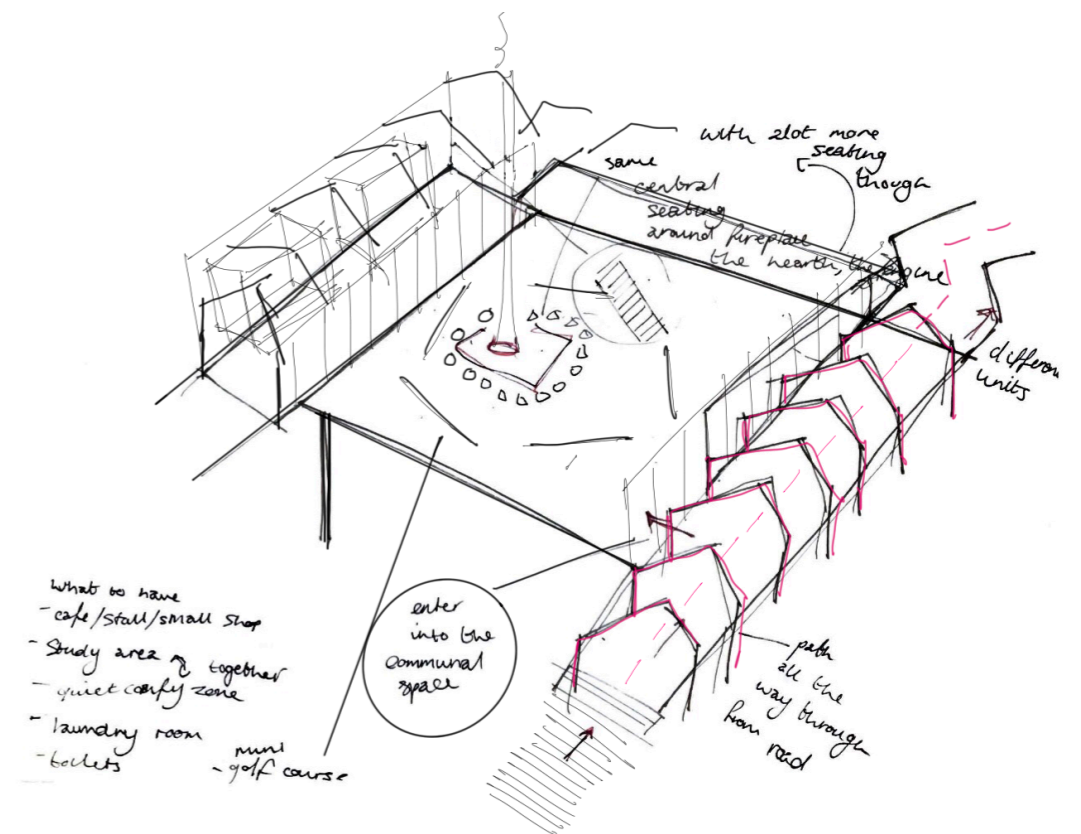 with alot more
seating
though
same
central
seating
around fireplace
the hearth, the engine
different
units
what to have
- cafe/stall/small shop
- Study area
together
- quiet comfy zone
- laundry room
- toilets
mini
- golf course
enter
into the
communal
space
path
all the
way through
from road